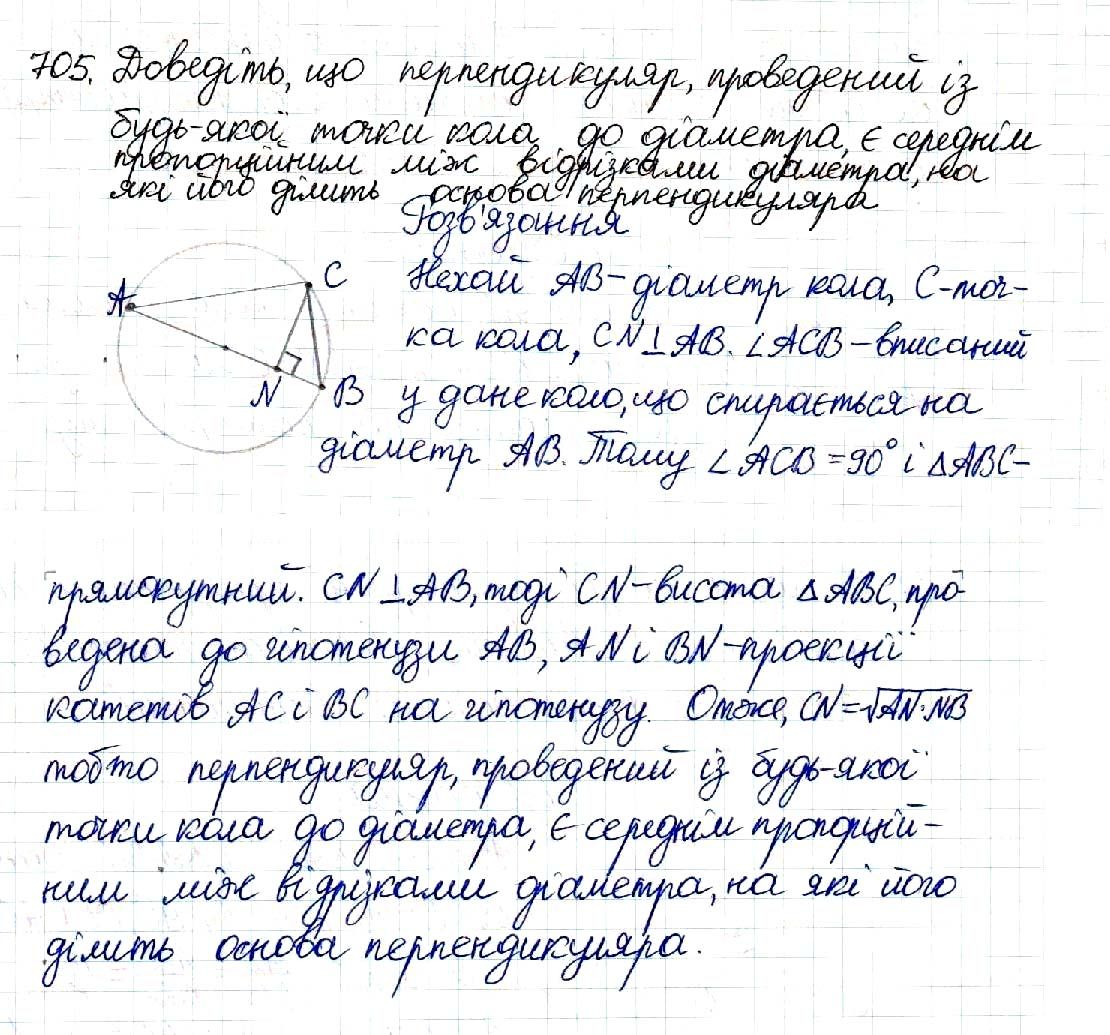 705. Доведіть, що перпендикуляр, проведений із
будь-якої точки кола до діаметра, є середнім
пропорційним між відрізками діаметра, на
які його ділить основа перпендикуляра
Розв'язання
A
C
N
B
Нехай AB – діаметр кола, C – точ-
ка кола, CN ⊥ AB. ∠ACB – вписаний
у дане коло, що спирається на
діаметр AB. Тому ∠ACB = 90° і △ABC –
прямокутний. CN ⊥ AB, тоді CN – висота △ABC, про-
ведена до гіпотенузи AB, AN і BN – проекції
катетів AC і BC на гіпотенузу. Отже, CN = √AN·NB
тобто перпендикуляр, проведений із будь-якої
точки кола до діаметра, є середнім пропорцій-
ним між відрізками діаметра, на які його
ділить основа перпендикуляра.